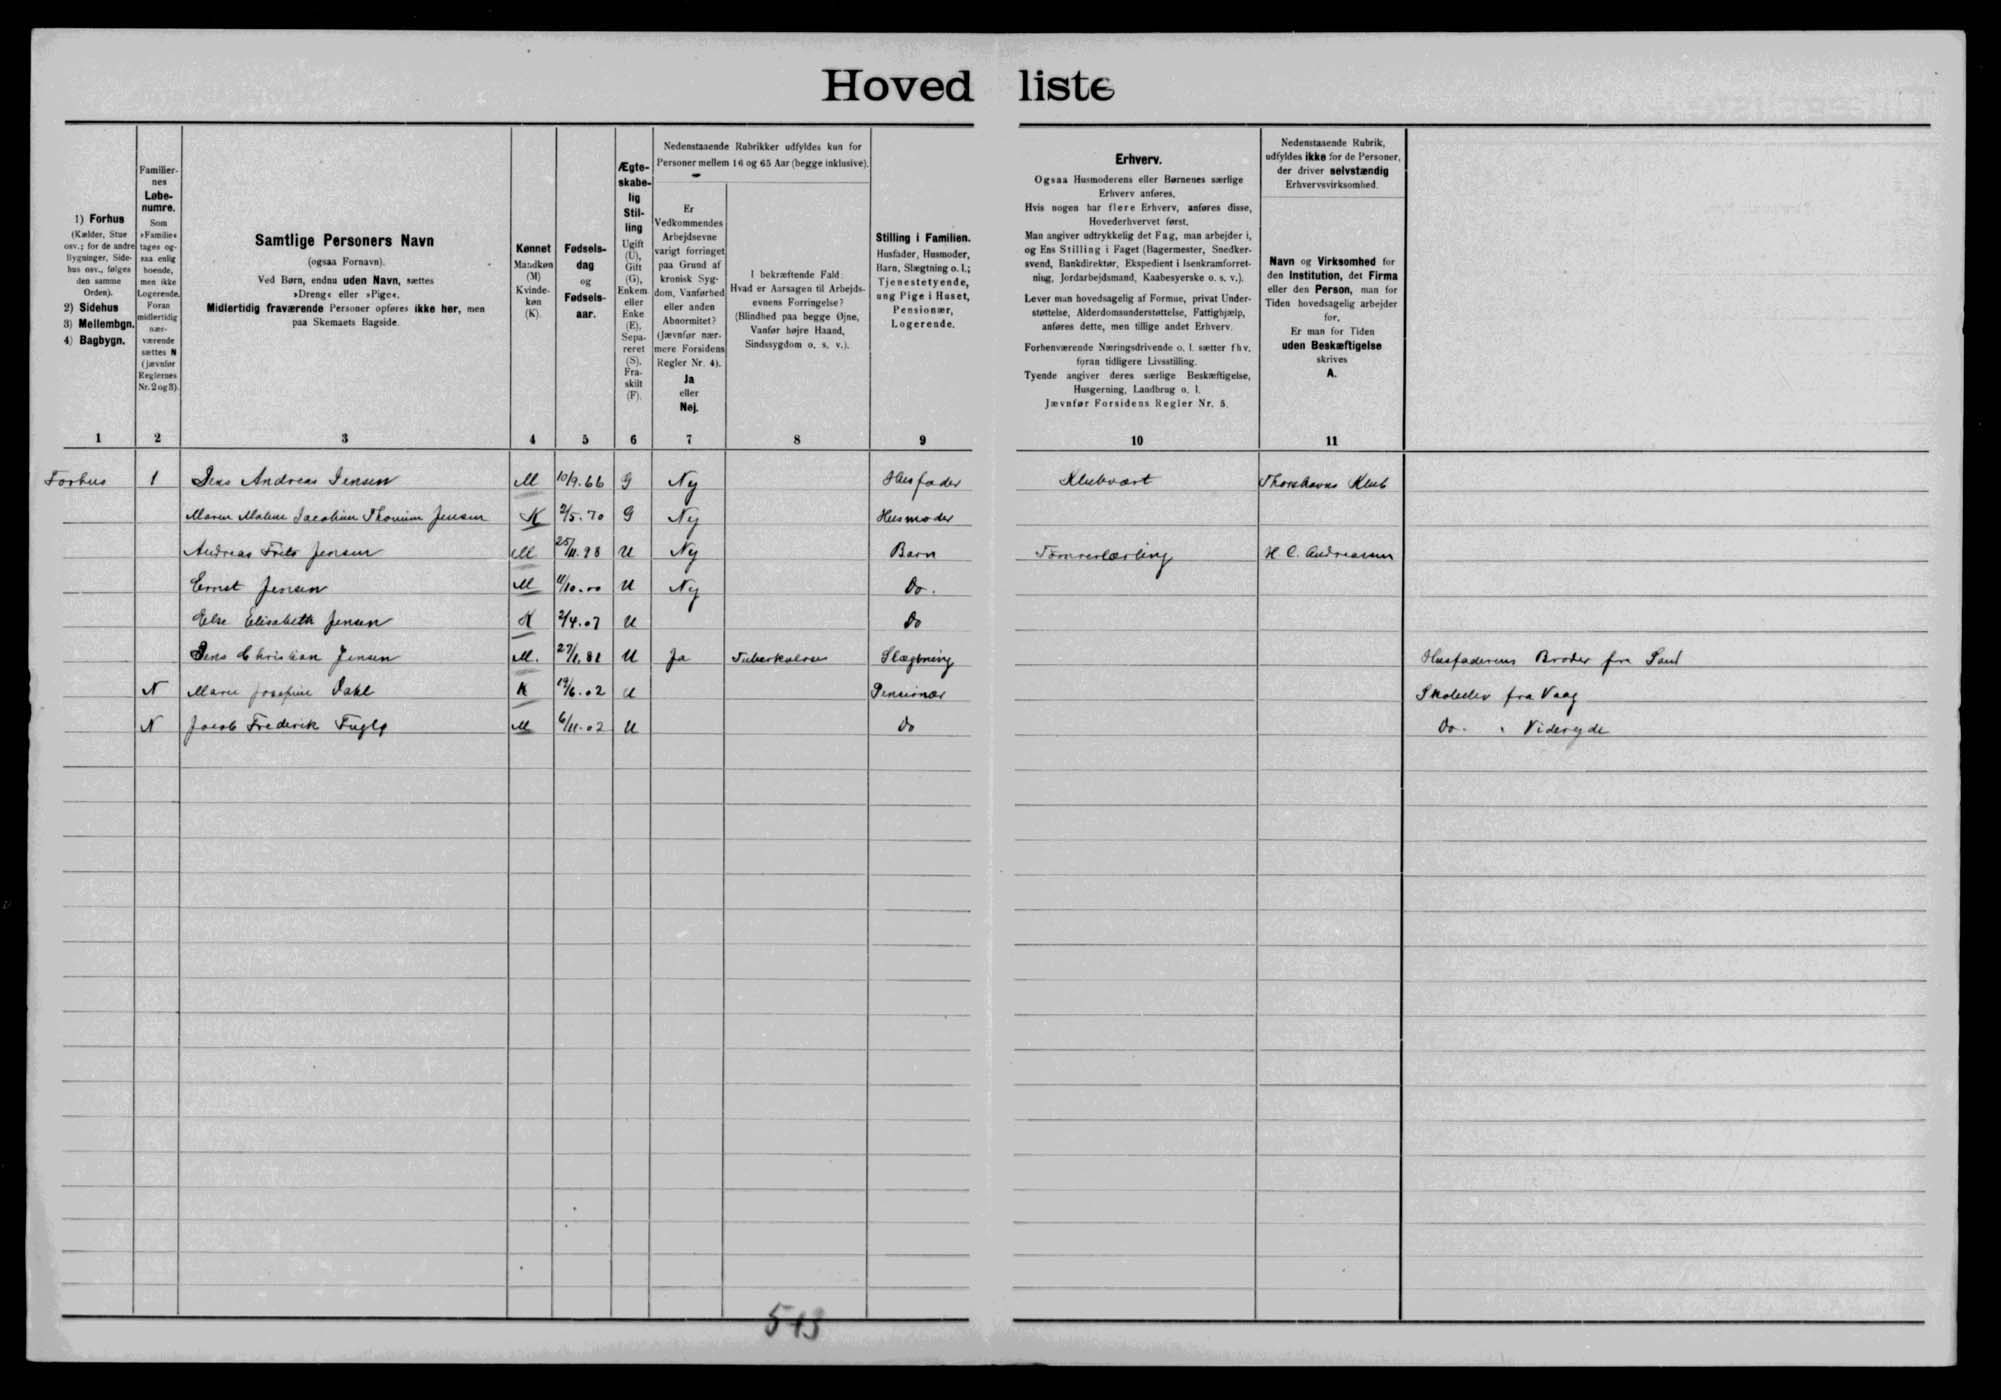 Hovedliste
1) Forhus
(Kælder, Stue
osv.; for de andre
Bygninger, Side-
hus osv., følges
den samme
Orden).
2) Sidehus
3) Mellembgn.
4) Bagbygn.
Familier-
nes
Løbe-
numre.
Som
»Familie«
tages og-
saa enlig
boende,
men ikke
Logerende.
Foran
midlertidig
nær-
værende
sættes N
(jævnfør
Reglernes
Nr. 2 og 3).
Samtlige Personers Navn
(ogsaa Fornavn).
Ved Børn, endnu uden Navn, sættes
»Dreng« eller »Pige«.
Midlertidig fraværende Personer opføres ikke her, men
paa Skemaets Bagside.
Kønnet
Mandkøn
(M)
Kvinde-
køn
(K).
Fødsels-
dag
og
Fødsels-
aar.
Ægte-
skabe-
lig
Stil-
ling
Ugift
(U),
Gift
(G),
Enkem.
eller
Enke
(E),
Sepa-
reret
(S),
Fra-
skilt
(F).
Nedenstaaende Rubrikker udfyldes kun for
Personer mellem 16 og 65 Aar (begge inklusive).
Er
Vedkommendes
Arbejdsevne
varigt forringet
paa Grund af
kronisk Syg-
dom, Vanførhed
eller anden
Abnormitet?
(Jævnfør nær-
mere Forsidens
Regler Nr. 4).
Ja
eller
Nej.
I bekræftende Fald:
Hvad er Aarsagen til Arbejds-
evnens Forringelse?
(Blindhed paa begge Øjne,
Vanfør højre Haand,
Sindssygdom o. s. v.).
Stilling i Familien.
Husfader, Husmoder,
Barn, Slægtning o. l.;
Tjenestetyende,
ung Pige i Huset,
Pensionær,
Logerende.
Erhverv.
Ogsaa Husmoderens eller Børnenes særlige
Erhverv anføres.
Hvis nogen har flere Erhverv, anføres disse,
Hovederhvervet først.
Man angiver udtrykkelig det Fag, man arbejder i,
og Ens Stilling i Faget (Bagermester, Snedker-
svend, Bankdirektør, Ekspedient i Isenkramforret-
ning, Jordarbejdsmand, Kaabesyerske o. s. v.).
Lever man hovedsagelig af Formue, privat Under-
støttelse, Alderdomsunderstøttelse, Fattighjælp,
anføres dette, men tillige andet Erhverv.
Forhenværende Næringsdrivende o. l. sætter fhv.
foran tidligere Livsstilling.
Tyende angiver deres særlige Beskæftigelse,
Husgerning, Landbrug o. l.
Jævnfør Forsidens Regler Nr. 5.
Nedenstaaende Rubrik,
udfyldes ikke for de Personer,
der driver selvstændig
Erhvervsvirksomhed.
Navn og Virksomhed for
den Institution, det Firma
eller den Person, man for
Tiden hovedsagelig arbejder
for.
Er man for Tiden
uden Beskæftigelse
skrives
A.
1 2 3 4 5 6 7 8 9 10 11
Forhus 1 Jens Andreas Jensen M 10/9.66 G Nej Husfader Klubvært Thorshavns Klub
Maren Malene Jacobine Thomine Jensen K 2/5.70 G Nej Husmoder
Andreas Frits Jensen M 25/11.98 U Nej Barn Tømrerlærling H. C. Andreasen
Ernst Jensen M 11/10.00 U Nej Do.
Else Elisabeth Jensen K 2/4.07 U Do
Jens Christian Jensen M. 27/1.81 U Ja Tuberkulose Slægtning Husfaderens Broder fra Sand
N Maren Josefine Dahl K 19/6.02 U Pensionær Skoleelev fra Vaag
N Jacob Frederik Fuglø M 6/11.02 U Do Do. " Videreyde
513